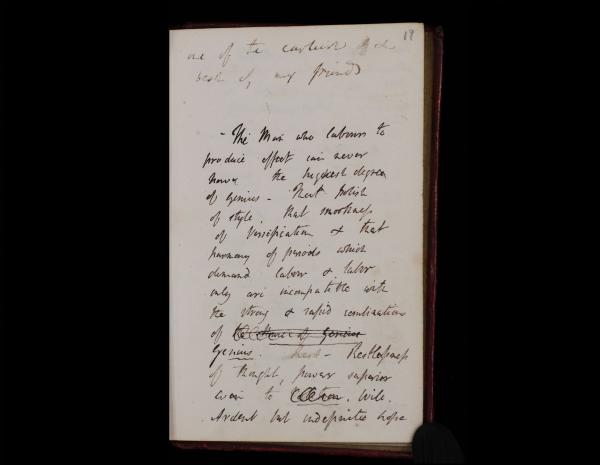 19
one of the earliest & the
best of my friends
- The Man who labours to
produce effect can never
have the highest degree
of Genius - That polish
of style, that smoothness
of versification & that
harmony of periods which
demand labour & labor
only are incompatible with
the strong & rapid combinations
of Genius
Genius. - Restlessness
of thought, power superior
even to Will.
Ardent but indefinite hope